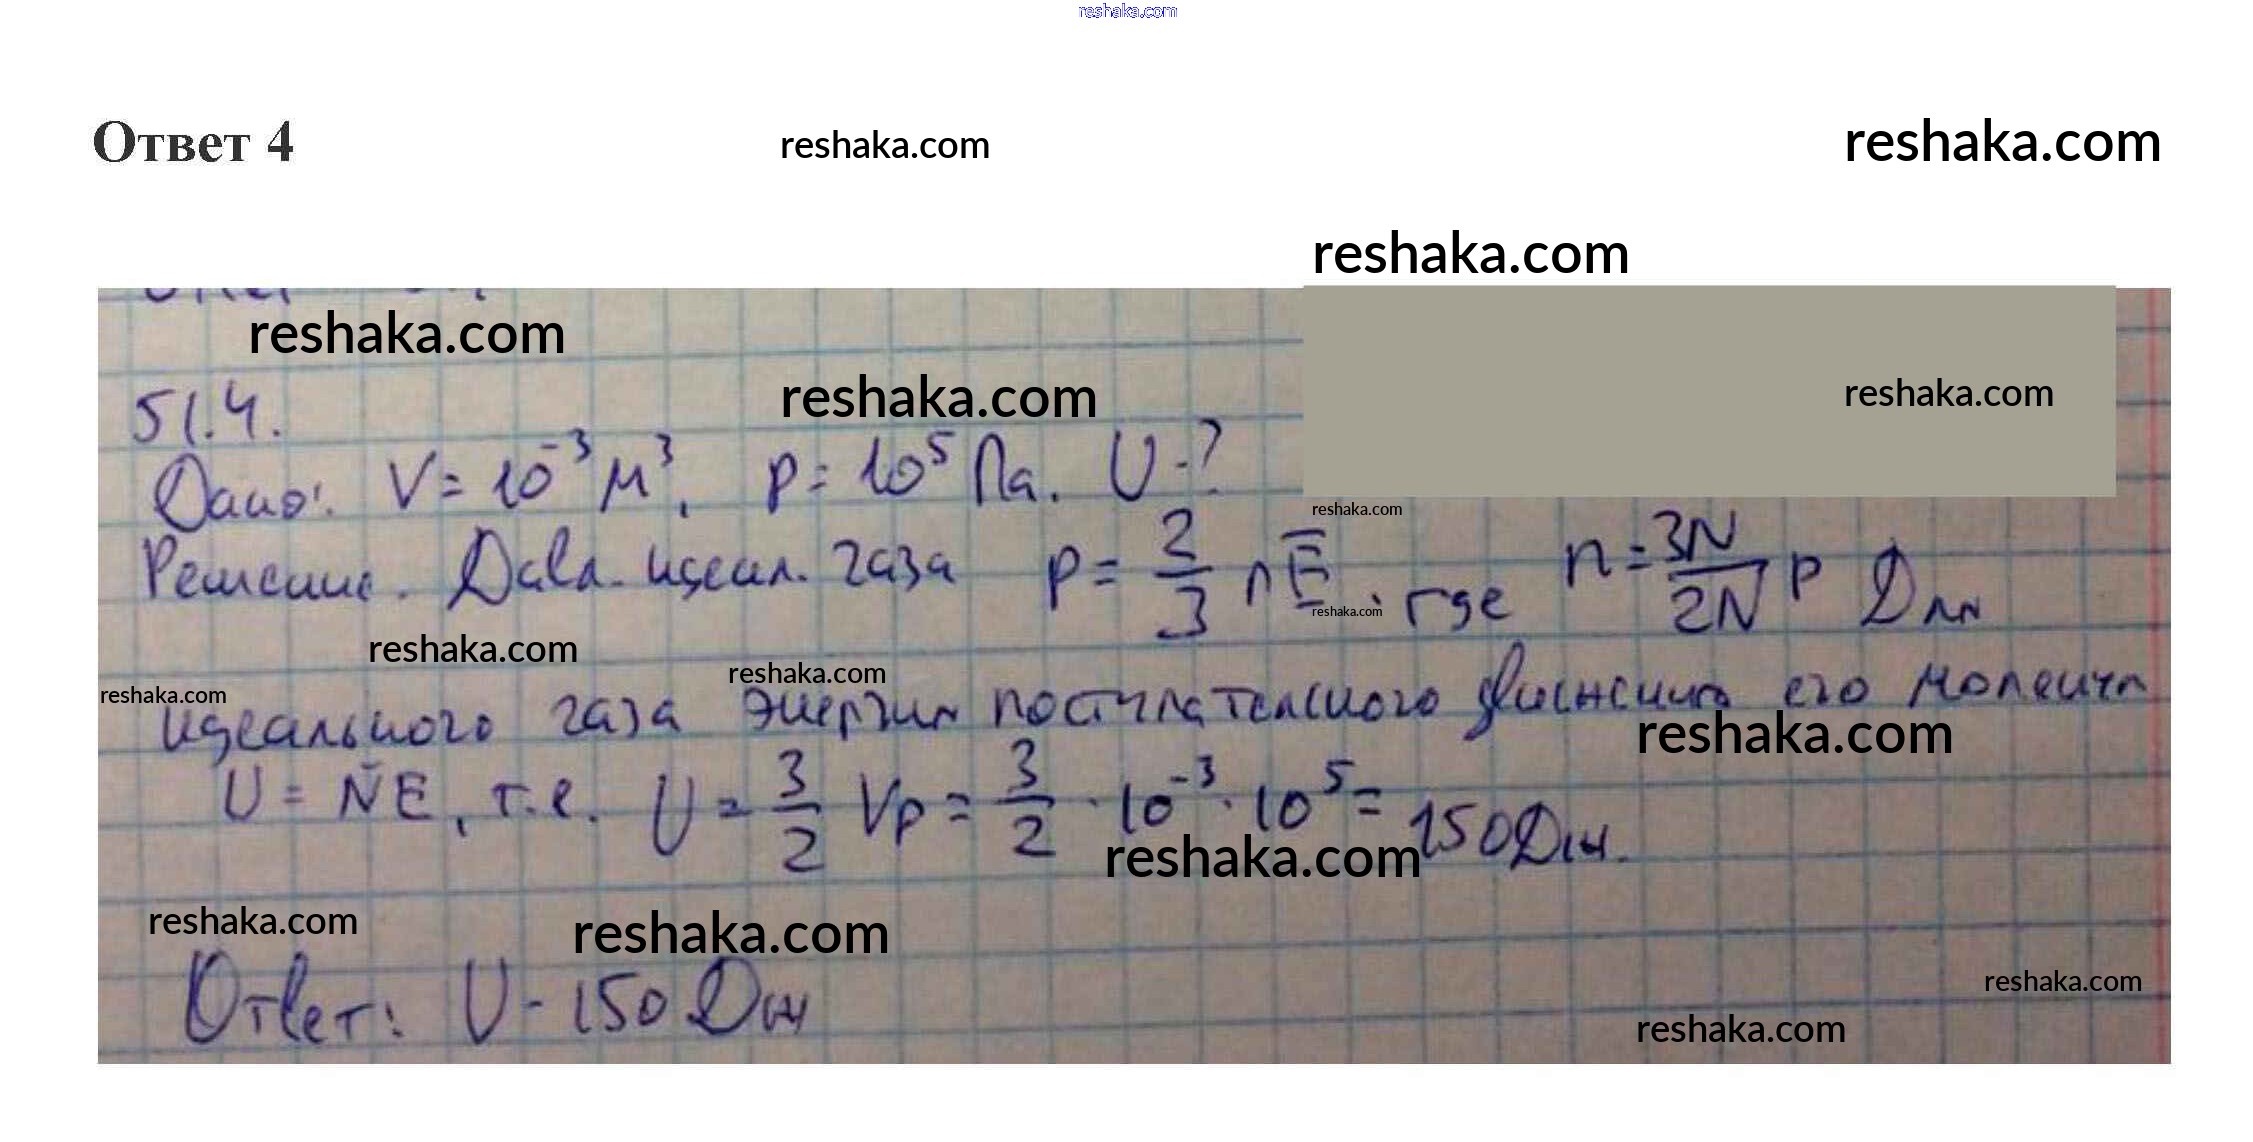 reshaka.com
Ответ 4 reshaka.com reshaka.com
reshaka.com
reshaka.com
reshaka.com reshaka.com
51.4.
Дано: V = 10⁻³ м³, p = 10⁵ Па. U - ?
reshaka.com
Решение. газа p = 2/3 n E̅. где n = 3N/2N p Для
reshaka.com
reshaka.com reshaka.com
reshaka.com
идеального газа энергия поступательного движения его молекул
reshaka.com
U = N̅E, т.е. U = 3/2 Vp = 3/2 · 10⁻³ · 10⁵ = 150 Дж.
reshaka.com
reshaka.com reshaka.com
Ответ: U - 150 Дж
reshaka.com
reshaka.com